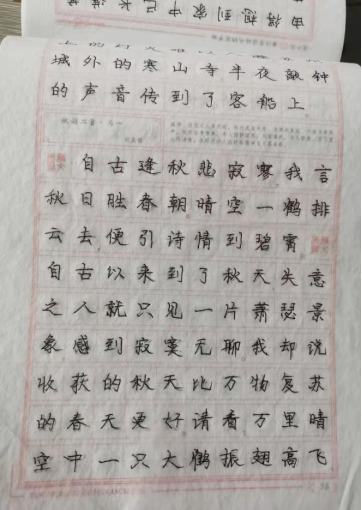 由得想到家中已长满
城外的寒山寺半夜敲钟
的声音传到了客船上
秋词二首·其一
自古逢秋悲寂寥我言
秋日胜春朝晴空一鹤排
云去便引诗情到碧霄
自古以来到了秋天失意
之人就只见一片萧瑟景
象感到寂寞无聊我却说
收获的秋天比万物复苏
的春天更好请看万里晴
空中一只大鹤振翅高飞